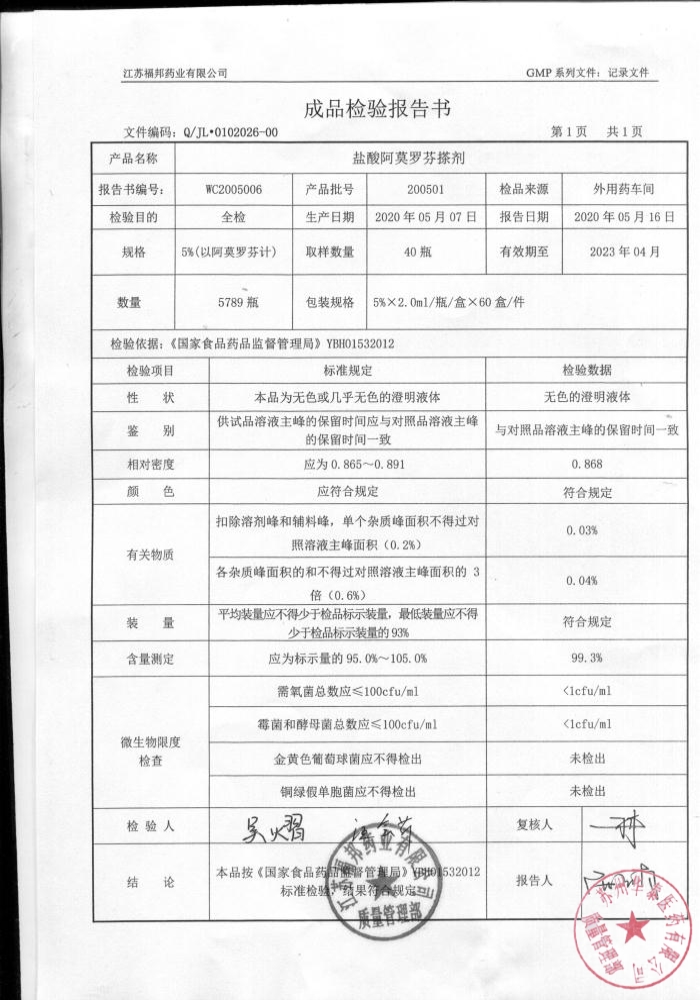 江苏福邦药业有限公司 GMP 系列文件：记录文件
成品检验报告书
文件编码：Q/JL•0102026-00 第1页 共1页
产品名称 盐酸阿莫罗芬搽剂
报告书编号： WC2005006 产品批号 200501 检品来源 外用药车间
检验目的 全检 生产日期 2020 年 05 月 07 日 报告日期 2020 年 05 月 16 日
规格 5%(以阿莫罗芬计) 取样数量 40 瓶 有效期至 2023 年 04 月
数量 5789 瓶 包装规格 5%×2.0ml/瓶/盒×60 盒/件
检验依据：《国家食品药品监督管理局》YBH01532012
检验项目 标准规定 检验数据
性 状 本品为无色或几乎无色的澄明液体 无色的澄明液体
鉴 别 供试品溶液主峰的保留时间应与对照品溶液主峰
的保留时间一致 与对照品溶液主峰的保留时间一致
相对密度 应为 0.865～0.891 0.868
颜 色 应符合规定 符合规定
有关物质 扣除溶剂峰和辅料峰，单个杂质峰面积不得过对
照溶液主峰面积（0.2%） 0.03%
各杂质峰面积的和不得过对照溶液主峰面积的 3
倍（0.6%） 0.04%
装 量 平均装量应不得少于检品标示装量，最低装量应不得
少于检品标示装量的 93% 符合规定
含量测定 应为标示量的 95.0%～105.0% 99.3%
微生物限度
检查
需氧菌总数应≤100cfu/ml <1cfu/ml
霉菌和酵母菌总数应≤100cfu/ml <1cfu/ml
金黄色葡萄球菌应不得检出 未检出
铜绿假单胞菌应不得检出 未检出
检 验 人 复核人
结 论 本品按《国家食品药品监督管理局》YBH01532012
标准检验，结果符合规定 报告人
江苏福邦药业有限公司
质量管理部